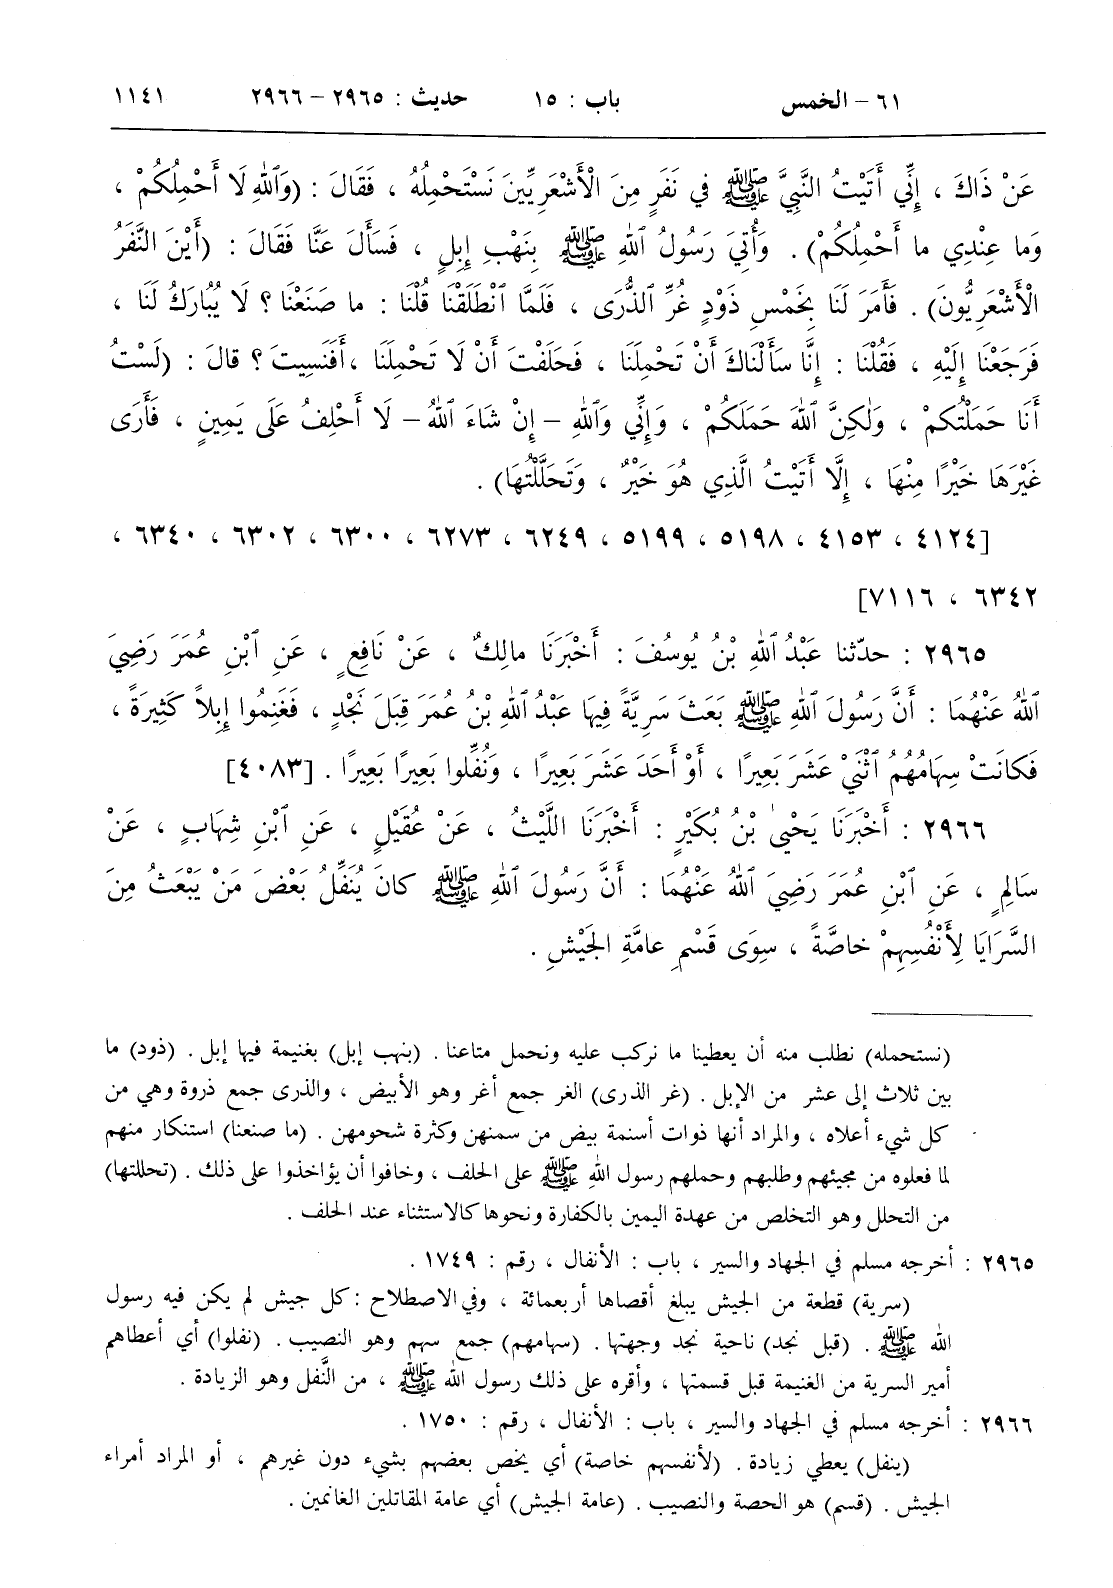 ٦١ – الخمس باب : ١٥ حديث : ٢٩٦٥ – ٢٩٦٦ ١١٤١
عَنْ ذَاكَ ، إِنِّي أَتَيْتُ النَّبِيَّ ﷺ في نَفَرٍ مِنَ الْأَشْعَرِيِّينَ نَسْتَحْمِلُهُ ، فَقَالَ : (وَٱللهِ لَا أَحْمِلُكُمْ ،
وَما عِنْدِي ما أَحْمِلُكُمْ) . وَأُتِيَ رَسُولُ ٱللهِ ﷺ بِنَهْبِ إِبِلٍ ، فَسَأَلَ عَنَّا فَقَالَ : (أَيْنَ النَّفَرُ
الْأَشْعَرِيُّونَ) . فَأَمَرَ لَنَا بِخَمْسِ ذَوْدٍ غُرِّ ٱلذُّرَى ، فَلَمَّا ٱنْطَلَقْنَا قُلْنَا : ما صَنَعْنَا ؟ لَا يُبَارَكُ لَنَا ،
فَرَجَعْنَا إِلَيْهِ ، فَقُلْنَا : إِنَّا سَأَلْنَاكَ أَنْ تَحْمِلَنَا ، فَحَلَفْتَ أَنْ لَا تَحْمِلَنَا ، أَفَنَسِيتَ ؟ قالَ : (لَسْتُ
أَنَا حَمَلْتُكُمْ ، وَلٰكِنَّ ٱللهَ حَمَلَكُمْ ، وَإِنِّي وَٱللهِ – إِنْ شَاءَ ٱللهُ – لَا أَحْلِفُ عَلَى يَمِينٍ ، فَأَرَى
غَيْرَهَا خَيْرًا مِنْهَا ، إِلَّا أَتَيْتُ الَّذِي هُوَ خَيْرٌ ، وَتَحَلَّلْتُهَا) .
[٤١٢٤ ، ٤١٥٣ ، ٥١٩٨ ، ٥١٩٩ ، ٦٢٤٩ ، ٦٢٧٣ ، ٦٣٠٠ ، ٦٣٠٢ ، ٦٣٤٠ ،
٦٣٤٢ ، ٧١١٦]
٢٩٦٥ : حدّثنا عَبْدُ ٱللهِ بْنُ يُوسُفَ : أَخْبَرَنَا مالِكٌ ، عَنْ نَافِعٍ ، عَنِ ٱبْنِ عُمَرَ رَضِيَ
ٱللهُ عَنْهُمَا : أَنَّ رَسُولَ ٱللهِ ﷺ بَعَثَ سَرِيَّةً فِيهَا عَبْدُ ٱللهِ بْنُ عُمَرَ قِبَلَ نَجْدٍ ، فَغَنِمُوا إِبِلاً كَثِيرَةً ،
فَكانَتْ سِهَامُهُمُ ٱثْنَيْ عَشَرَ بَعِيرًا ، أَوْ أَحَدَ عَشَرَ بَعِيرًا ، وَنُفِّلُوا بَعِيرًا بَعِيرًا . [٤٠٨٣]
٢٩٦٦ : أَخْبَرَنَا يَحْيىٰ بْنُ بُكَيْرٍ : أَخْبَرَنَا اللَّيْثُ ، عَنْ عُقَيْلٍ ، عَنِ ٱبْنِ شِهَابٍ ، عَنْ
سَالِمٍ ، عَنِ ٱبْنِ عُمَرَ رَضِيَ ٱللهُ عَنْهُمَا : أَنَّ رَسُولَ ٱللهِ ﷺ كانَ يُنَفِّلُ بَعْضَ مَنْ يَبْعَثُ مِنَ
السَّرَايَا لِأَنْفُسِهِمْ خاصَّةً ، سِوَى قَسْمِ عامَّةِ الجَيْشِ .
(نستحمله) نطلب منه أن يعطينا ما نركب عليه ونحمل متاعنا . (بنهب إبل) بغنيمة فيها إبل . (ذود) ما
بين ثلاث إلى عشر من الإبل . (غر الذرى) الغر جمع أغر وهو الأبيض ، والذرى جمع ذروة وهي من
كل شيء أعلاه ، والمراد أنها ذوات أسنمة بيض من سمنهن وكثرة شحومهن . (ما صنعنا) استنكار منهم
لما فعلوه من مجيئهم وطلبهم وحملهم رسول الله ﷺ على الحلف ، وخافوا أن يؤاخذوا على ذلك . (تحللتها)
من التحلل وهو التخلص من عهدة اليمين بالكفارة ونحوها كالاستثناء عند الحلف .
٢٩٦٥ : أخرجه مسلم في الجهاد والسير ، باب : الأنفال ، رقم : ١٧٤٩ .
(سرية) قطعة من الجيش يبلغ أقصاها أربعمائة ، وفي الاصطلاح : كل جيش لم يكن فيه رسول
الله ﷺ . (قبل نجد) ناحية نجد وجهتها . (سهامهم) جمع سهم وهو النصيب . (نفلوا) أي أعطاهم
أمير السرية من الغنيمة قبل قسمتها ، وأقره على ذلك رسول الله ﷺ ، من النَّفل وهو الزيادة .
٢٩٦٦ : أخرجه مسلم في الجهاد والسير ، باب : الأنفال ، رقم : ١٧٥٠ .
(ينفل) يعطي زيادة . (لأنفسهم خاصة) أي يخص بعضهم بشيء دون غيرهم ، أو المراد أمراء
الجيش . (قسم) هو الحصة والنصيب . (عامة الجيش) أي عامة المقاتلين الغانمين .